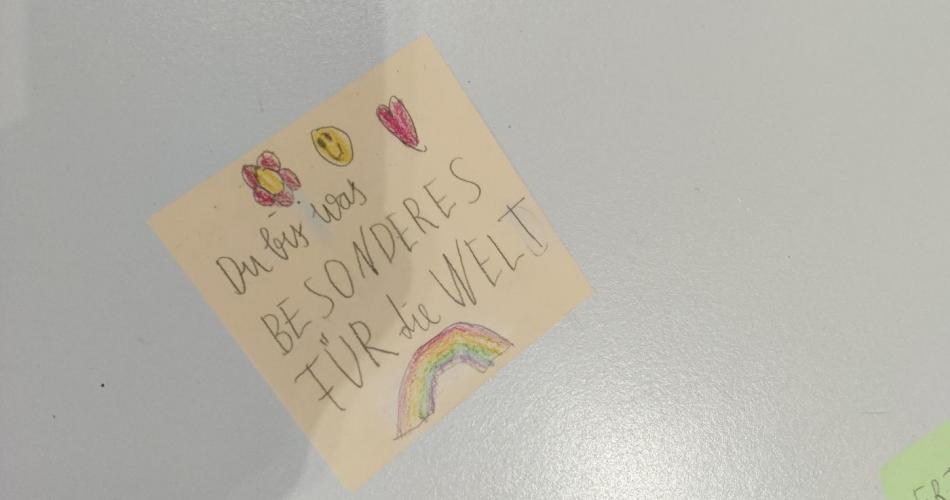 Du bis was
BESONDERES
FÜR die WELT